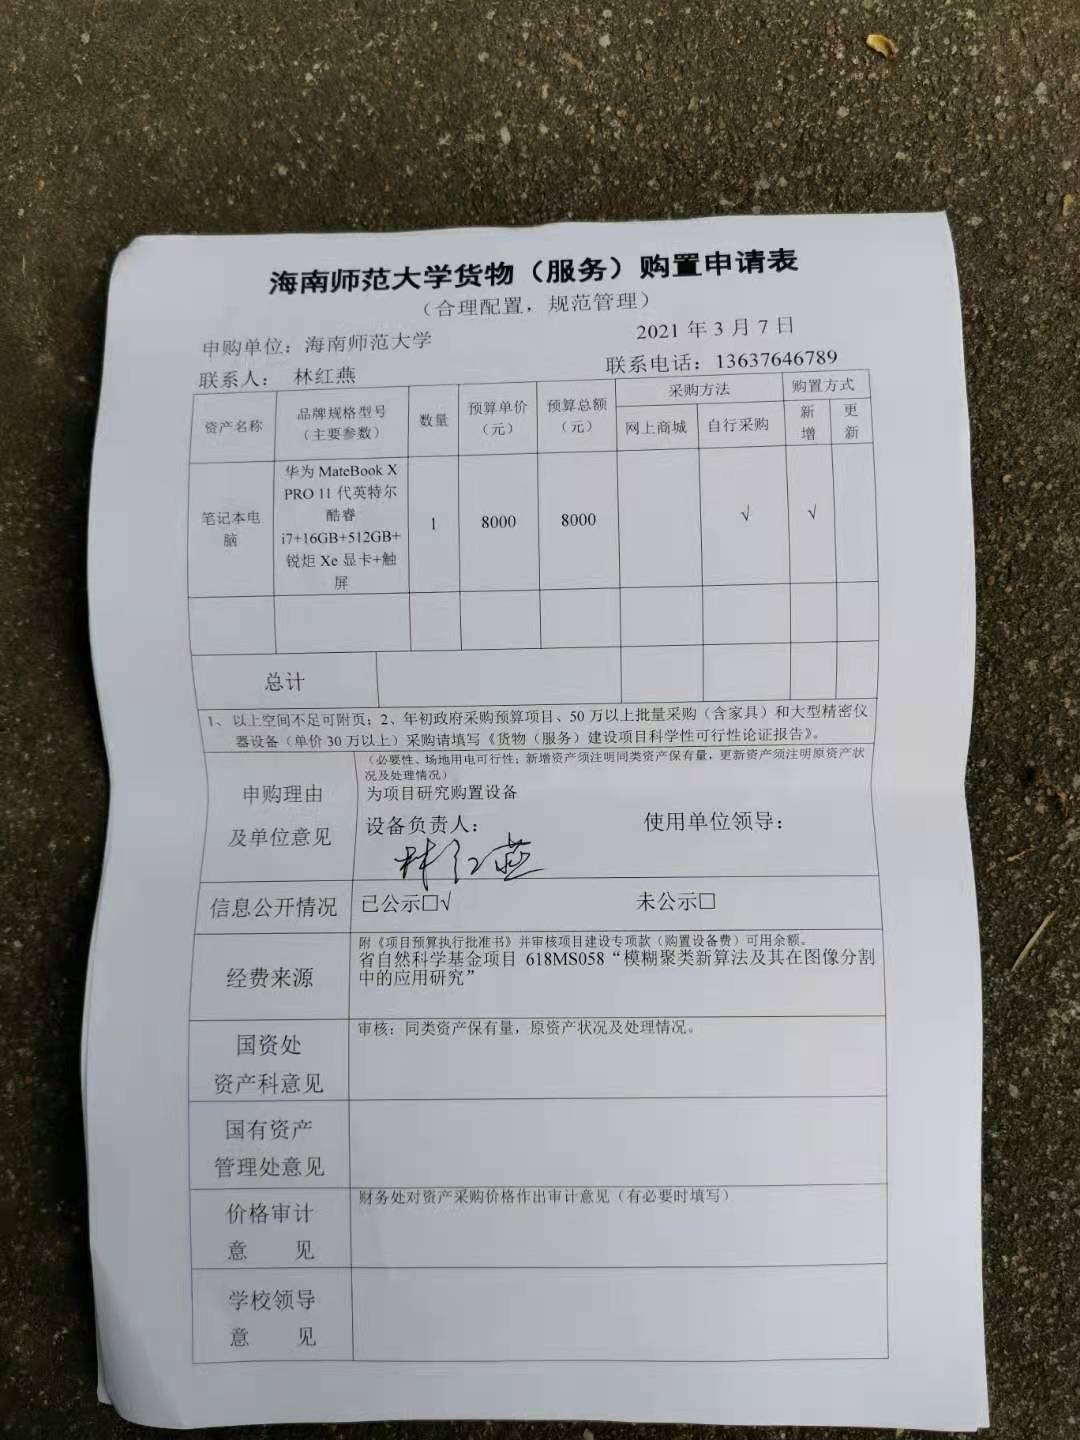 海南师范大学货物（服务）购置申请表
（合理配置，规范管理）
2021 年 3 月 7 日
申购单位：海南师范大学
联系人： 林红燕
联系电话：13637646789
资产名称
品牌规格型号
（主要参数）
数量
预算单价
（元）
预算总额
（元）
采购方法
购置方式
网上商城
自行采购
新
增
更
新
笔记本电
脑
华为 MateBook X
PRO 11 代英特尔
酷睿
i7+16GB+512GB+
锐炬 Xe 显卡+触
屏
1
8000
8000
√
√
总计
1、 以上空间不足可附页；2、年初政府采购预算项目、50 万以上批量采购（含家具）和大型精密仪
器设备（单价 30 万以上）采购请填写《货物（服务）建设项目科学性可行性论证报告》。
申购理由
及单位意见
（必要性、场地用电可行性；新增资产须注明同类资产保有量，更新资产须注明原资产状
况及处理情况）
为项目研究购置设备
设备负责人：
使用单位领导：
林红燕
信息公开情况
已公示□√
未公示□
经费来源
附《项目预算执行批准书》并审核项目建设专项款（购置设备费）可用余额。
省自然科学基金项目 618MS058“模糊聚类新算法及其在图像分割
中的应用研究”
国资处
资产科意见
审核：同类资产保有量，原资产状况及处理情况。
国有资产
管理处意见
价格审计
意 见
财务处对资产采购价格作出审计意见（有必要时填写）
学校领导
意 见